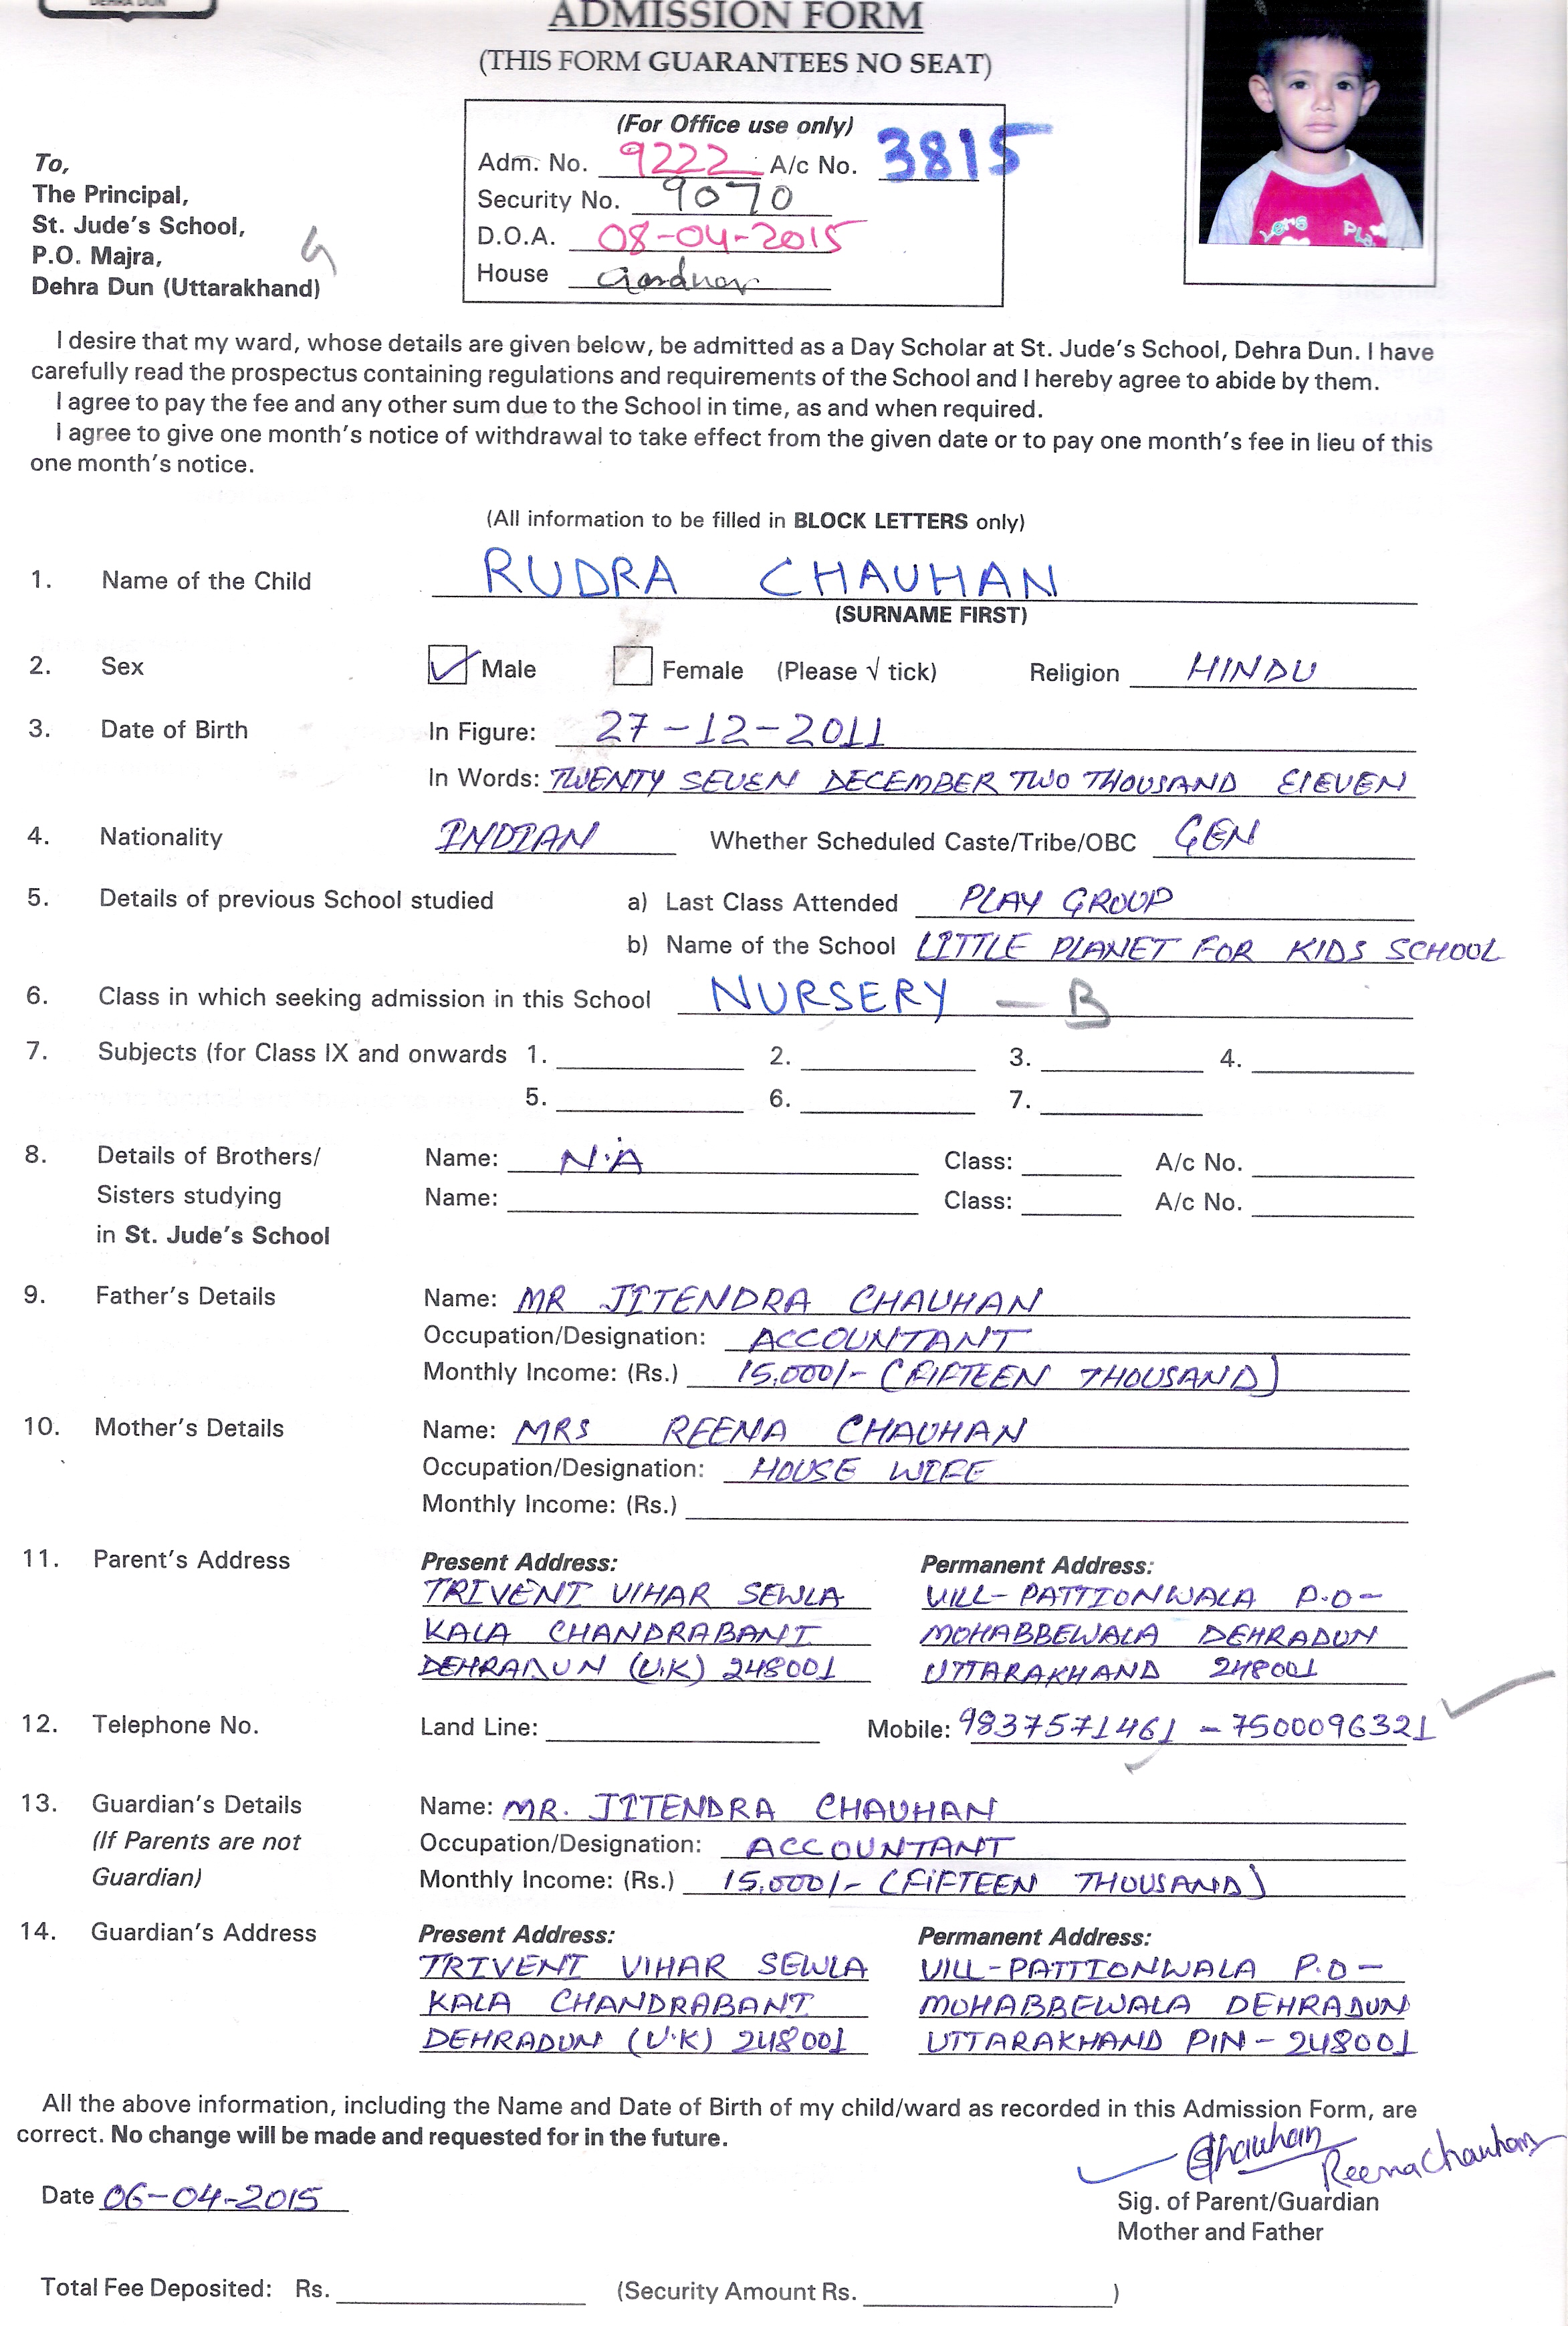 DEHRA DUN
ADMISSION FORM
(THIS FORM GUARANTEES NO SEAT)
(For Office use only)
Adm. No. 9222 A/c No. 3815
Security No. 9070
D.O.A. 08-04-2015
House Gardner
To,
The Principal,
St. Jude's School,
P.O. Majra,
Dehra Dun (Uttarakhand)
I desire that my ward, whose details are given below, be admitted as a Day Scholar at St. Jude's School, Dehra Dun. I have
carefully read the prospectus containing regulations and requirements of the School and I hereby agree to abide by them.
I agree to pay the fee and any other sum due to the School in time, as and when required.
I agree to give one month's notice of withdrawal to take effect from the given date or to pay one month's fee in lieu of this
one month's notice.
(All information to be filled in BLOCK LETTERS only)
1. Name of the Child RUDRA CHAUHAN
(SURNAME FIRST)
2. Sex Male Female (Please √ tick) Religion HINDU
3. Date of Birth In Figure: 27-12-2011
In Words: TWENTY SEVEN DECEMBER TWO THOUSAND ElEVEN
4. Nationality INDIAN Whether Scheduled Caste/Tribe/OBC GEN
5. Details of previous School studied a) Last Class Attended PLAY GROUP
b) Name of the School LITTLE PLANET FOR KIDS SCHOOL
6. Class in which seeking admission in this School NURSERY - B
7. Subjects (for Class IX and onwards 1. 2. 3. 4.
5. 6. 7.
8. Details of Brothers/ Name: N.A Class: A/c No.
Sisters studying Name: Class: A/c No.
in St. Jude's School
9. Father's Details Name: MR JITENDRA CHAUHAN
Occupation/Designation: ACCOUNTANT
Monthly Income: (Rs.) 15,000/- (FIFTEEN THOUSAND)
10. Mother's Details Name: MRS REENA CHAUHAN
Occupation/Designation: HOUSE WIFE
Monthly Income: (Rs.)
11. Parent's Address Present Address: Permanent Address:
TRIVENI VIHAR SEWLA VILL- PATTIONWALA P.O-
KALA CHANDRABANI MOHABBEWALA DEHRADUN
DEHRADUN (U.K) 248001 UTTARAKHAND 248001
12. Telephone No. Land Line: Mobile: 9837571461 - 7500096321
13. Guardian's Details Name: MR. JITENDRA CHAUHAN
(If Parents are not Occupation/Designation: ACCOUNTANT
Guardian) Monthly Income: (Rs.) 15,000/- (FIFTEEN THOUSAND)
14. Guardian's Address Present Address: Permanent Address:
TRIVENI VIHAR SEWLA VILL-PATTIONWALA P.O-
KALA CHANDRABANI MOHABBEWALA DEHRADUN
DEHRADUN (U.K) 248001 UTTARAKHAND PIN-248001
All the above information, including the Name and Date of Birth of my child/ward as recorded in this Admission Form, are
correct. No change will be made and requested for in the future.
Chauhan Reena Chauhan
Date 06-04-2015 Sig. of Parent/Guardian
Mother and Father
Total Fee Deposited: Rs. (Security Amount Rs. )